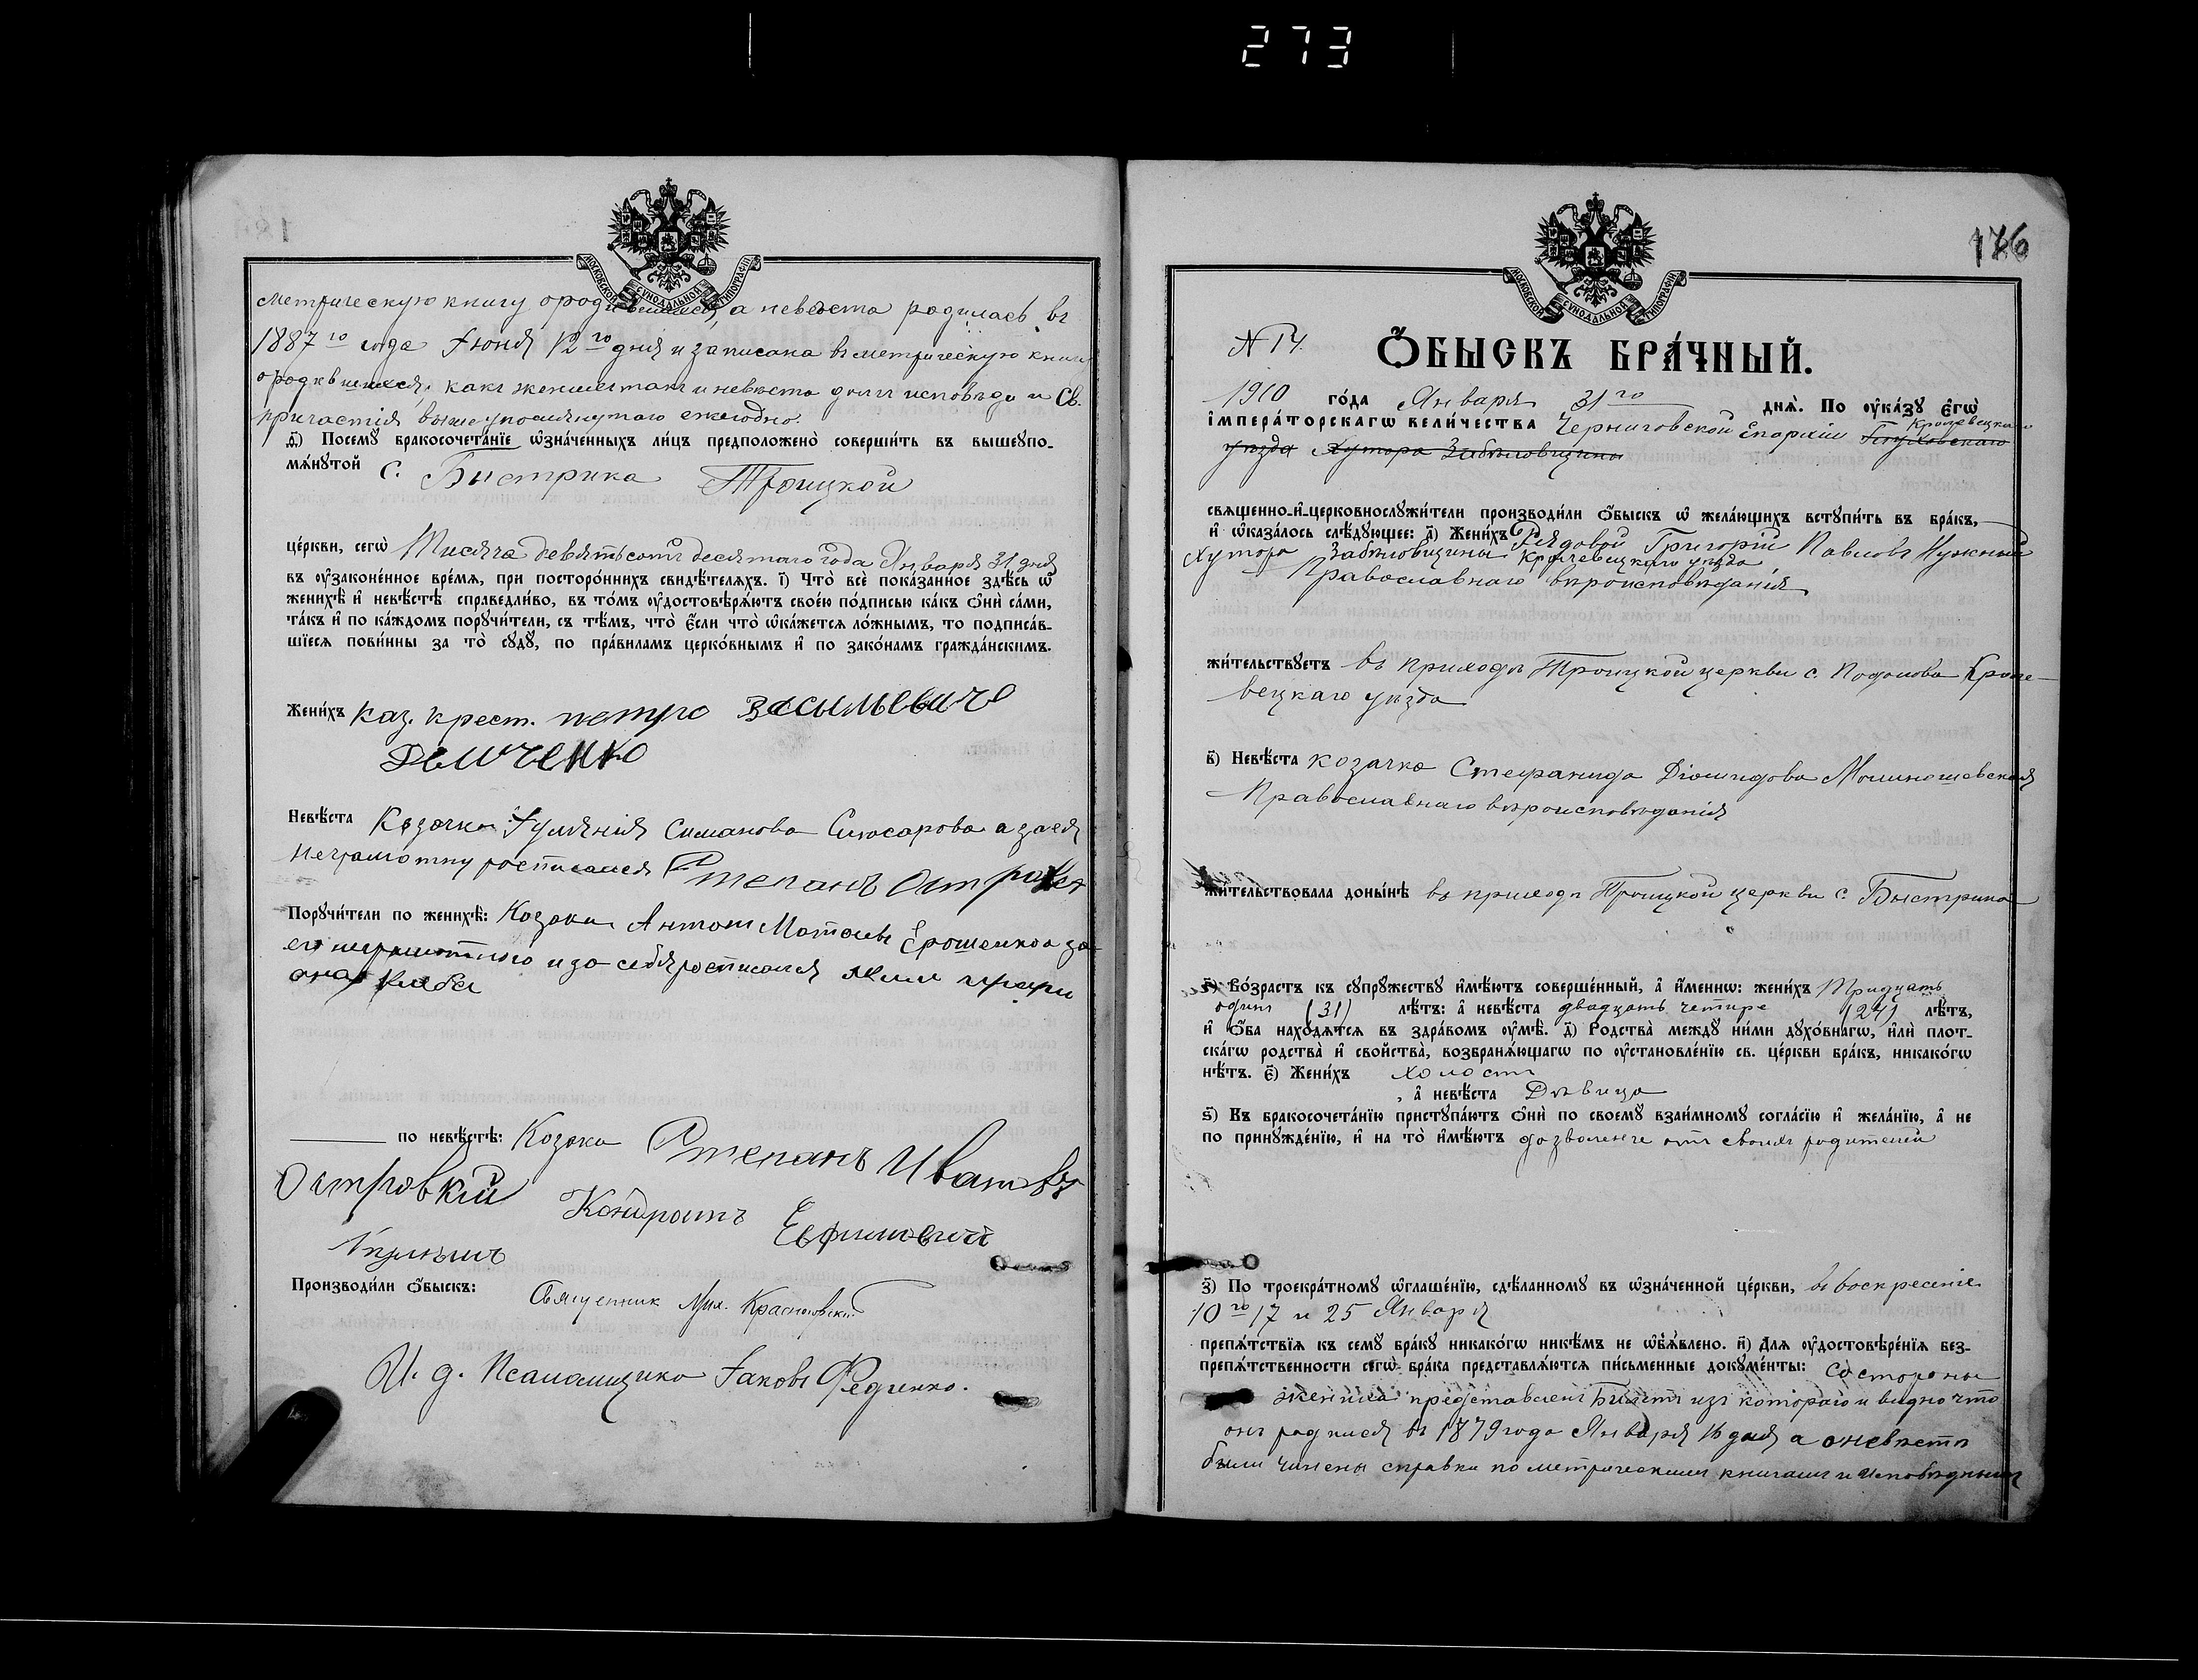 273
МОСКОВСКОЙ СѴНОДАЛЬНОЙ ТИПОГРАФІИ
метрическую книгу ородившихся, а невеста родилась въ
1887го года Іюня 12го дня и записана въ метрическую книгу
ородившихся, какъ женихъ такъ и невѣста были исповѣди и Св.
причастія вышеупомянутаго ежегодно.
ѳ҃) Посемꙋ̀ бракосочета́нїе ѡ҆зна́ченныхъ ли́цъ предположено̀ соверши́ть въ вышеупо-
мѧ́нутой с. Быстрика Троицкой
це́ркви, сегѡ̀ Тисяча девятьсотъ десятаго года Января 31 дня
въ ᲂу҆зако́ненное вре́мѧ, при посторо́ннихъ свидѣ́телѧхъ. і҃) Что̀ всѐ пока́занное здѣ́сь ѡ҆
женихѣ̀ и҆ невѣ́стѣ справедли́во, въ то́мъ ᲂу҆достовѣрѧ́ютъ свое́ю по́дписью ка́къ ѻ҆нѝ са́ми,
та́къ и҆ по ка́ждомъ порꙋчи́тели, съ тѣ́мъ, что̀ є҆́сли что̀ ѡ҆ка́жетсѧ ло́жнымъ, то подписа́в-
шїесѧ пови́нны за то̀ сꙋдꙋ̀, по пра́виламъ церко́внымъ и҆ по зако́намъ гражда́нскимъ.
Жени́хъ Каз. крест. петро Васильевиче
Демченко
Невѣ́ста Козачка Іуліанія Симанова Слюсарова а за ея
неграмотну росписался Степанъ Остро
Порꙋчи́тели по женихѣ̀: Козаки Антонъ Матвіевъ Ерошенко а за
его неграмотного и за себя росписался
по невѣ́стѣ: Козаки Степанъ Ивановъ
Островкій Кондратъ Евфимовий
Производи́ли ѻ҆́быскъ: Священник Мих. Красновскій
И. д. Псаломщика Іаковъ Феденко.
МОСКОВСКОЙ СѴНОДАЛЬНОЙ ТИПОГРАФІИ
176
№ 14.
Ѻ҆́БЫСКЪ БРА́ЧНЫЙ.
1910 го́да Января 31го днѧ̀. По ᲂу҆ка́зꙋ є҆гѡ̀
і҆мпера́торскагѡ вели́чества Черниговской Епархіи Глуховскаго Кролевецкаго
уезда Хутора Забѣловщины
свѧще́нно-и҆-церковнослꙋжи́тели производи́ли ѻ҆́быскъ ѡ҆ жела́ющихъ встꙋпи́ть въ бра́къ,
и҆ ѡ҆каза́лось слѣ́дꙋющее: а҃) Жени́хъ Рядовой Григорій Павловъ Нужный
хутора Забѣловщины Кролевецкаго уезда
Православнаго вѣроисповѣданія
жи́тельствꙋетъ въ приходѣ Троицкой церкви с. Подолова Кроле-
вецкаго уѣзда
в҃) Невѣ́ста козачка Стефанида Діомидова Молиношевская
Православнаго вѣроисповѣданія
жи́тельствовала доны́нѣ въ приходѣ Троицкой церкви с. Быстрика
г҃) Во́зрастъ къ сꙋпрꙋ́жествꙋ и҆мѣ́ютъ соверше́нный, а҆ и҆́меннѡ: жени́хъ Тридцать
одинъ (31) лѣ́тъ: а҆ невѣ́ста двадцать четире (24) лѣ́тъ,
и҆ ѻ҆́ба нахо́дѧтсѧ въ здра́вомъ ᲂу҆мѣ̀. д҃) Родства̀ междꙋ̀ ни́ми дꙋхо́внагѡ, и҆лѝ плот-
ска́гѡ родства̀ и҆ сво́йства, возбранѧ́ющагѡ по ᲂу҆становле́нїю св. це́ркви бра́къ, никако́гѡ
нѣ́тъ. є҃) Жени́хъ холостъ
, а҆ невѣ́ста Дѣвица
ѕ҃) Къ бракосочета́нїю пристꙋпа́ютъ ѻ҆нѝ по своемꙋ̀ взаи́мномꙋ согла́сїю и҆ жела́нїю, а҆ не
по принꙋжде́нїю, и҆ на то̀ и҆мѣ́ютъ дозволенге отъ своихъ родителей
з҃) По троекра́тномꙋ ѡ҆глаше́нїю, сдѣ́ланномꙋ въ ѡ҆зна́ченной це́ркви, въ воскресеніе
10го 17 и 25 Января
препѧ́тствїѧ къ семꙋ̀ бра́кꙋ никако́гѡ никѣ́мъ не ѡ҆б̾ѧ́влено. и҃) Для ᲂу҆достовѣре́нїѧ без-
препѧ́тственности сегѡ̀ бра́ка представлѧ́ютсѧ пи́сьменные докꙋме́нты: Со стороны
жениха представленъ Билетъ изъ котораго и видно что
онъ родился въ 1879 года Января 16 дня а о невѣсте
были чинены справки по метрическимъ книгамъ и исповѣднымъ